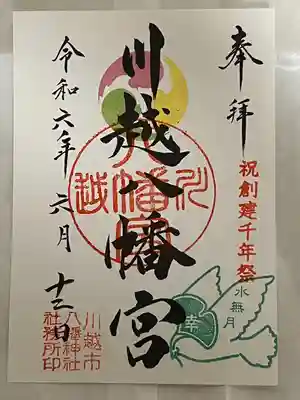 奉拝
祝創建千年祭
水無月
幸
川越八幡宮
川越八幡宮
令和六年六月十三日
川越市
八幡神社
社務所印